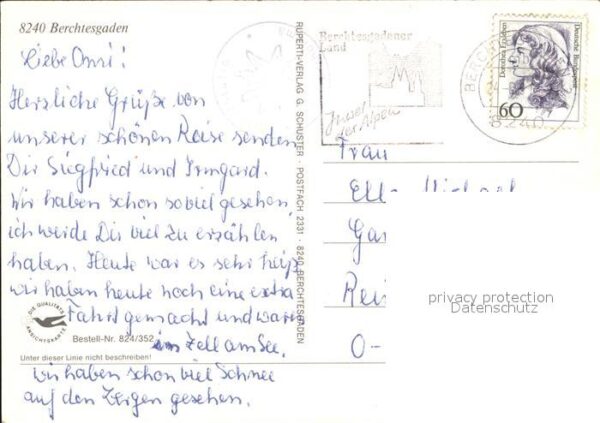 8240 Berchtesgaden
Liebe Omi!
Herzliche Grüße von
unserer schönen Reise senden
Dir Siegfried und Irmgard.
Wir haben schon soviel gesehen,
ich werde Dir viel zu erzählen
haben. Heute war es sehr heiß,
wir haben heute noch eine extra
Fahrt gemacht und waren
in Zell am See.
wir haben schon viel Schnee
auf den Bergen gesehen.
DIE QUALITÄTS
ANSICHTSKARTE
Bestell-Nr. 824/352
Unter dieser Linie nicht beschreiben!
RUPERTI-VERLAG G. SCHUSTER · POSTFACH 2331 · 8240 BERCHTESGADEN
Berchtesgadener
Land
Insel
der Alpen
Deutsche Bundespost
60
8240
Frau
Rei
O-
privacy protection
Datenschutz